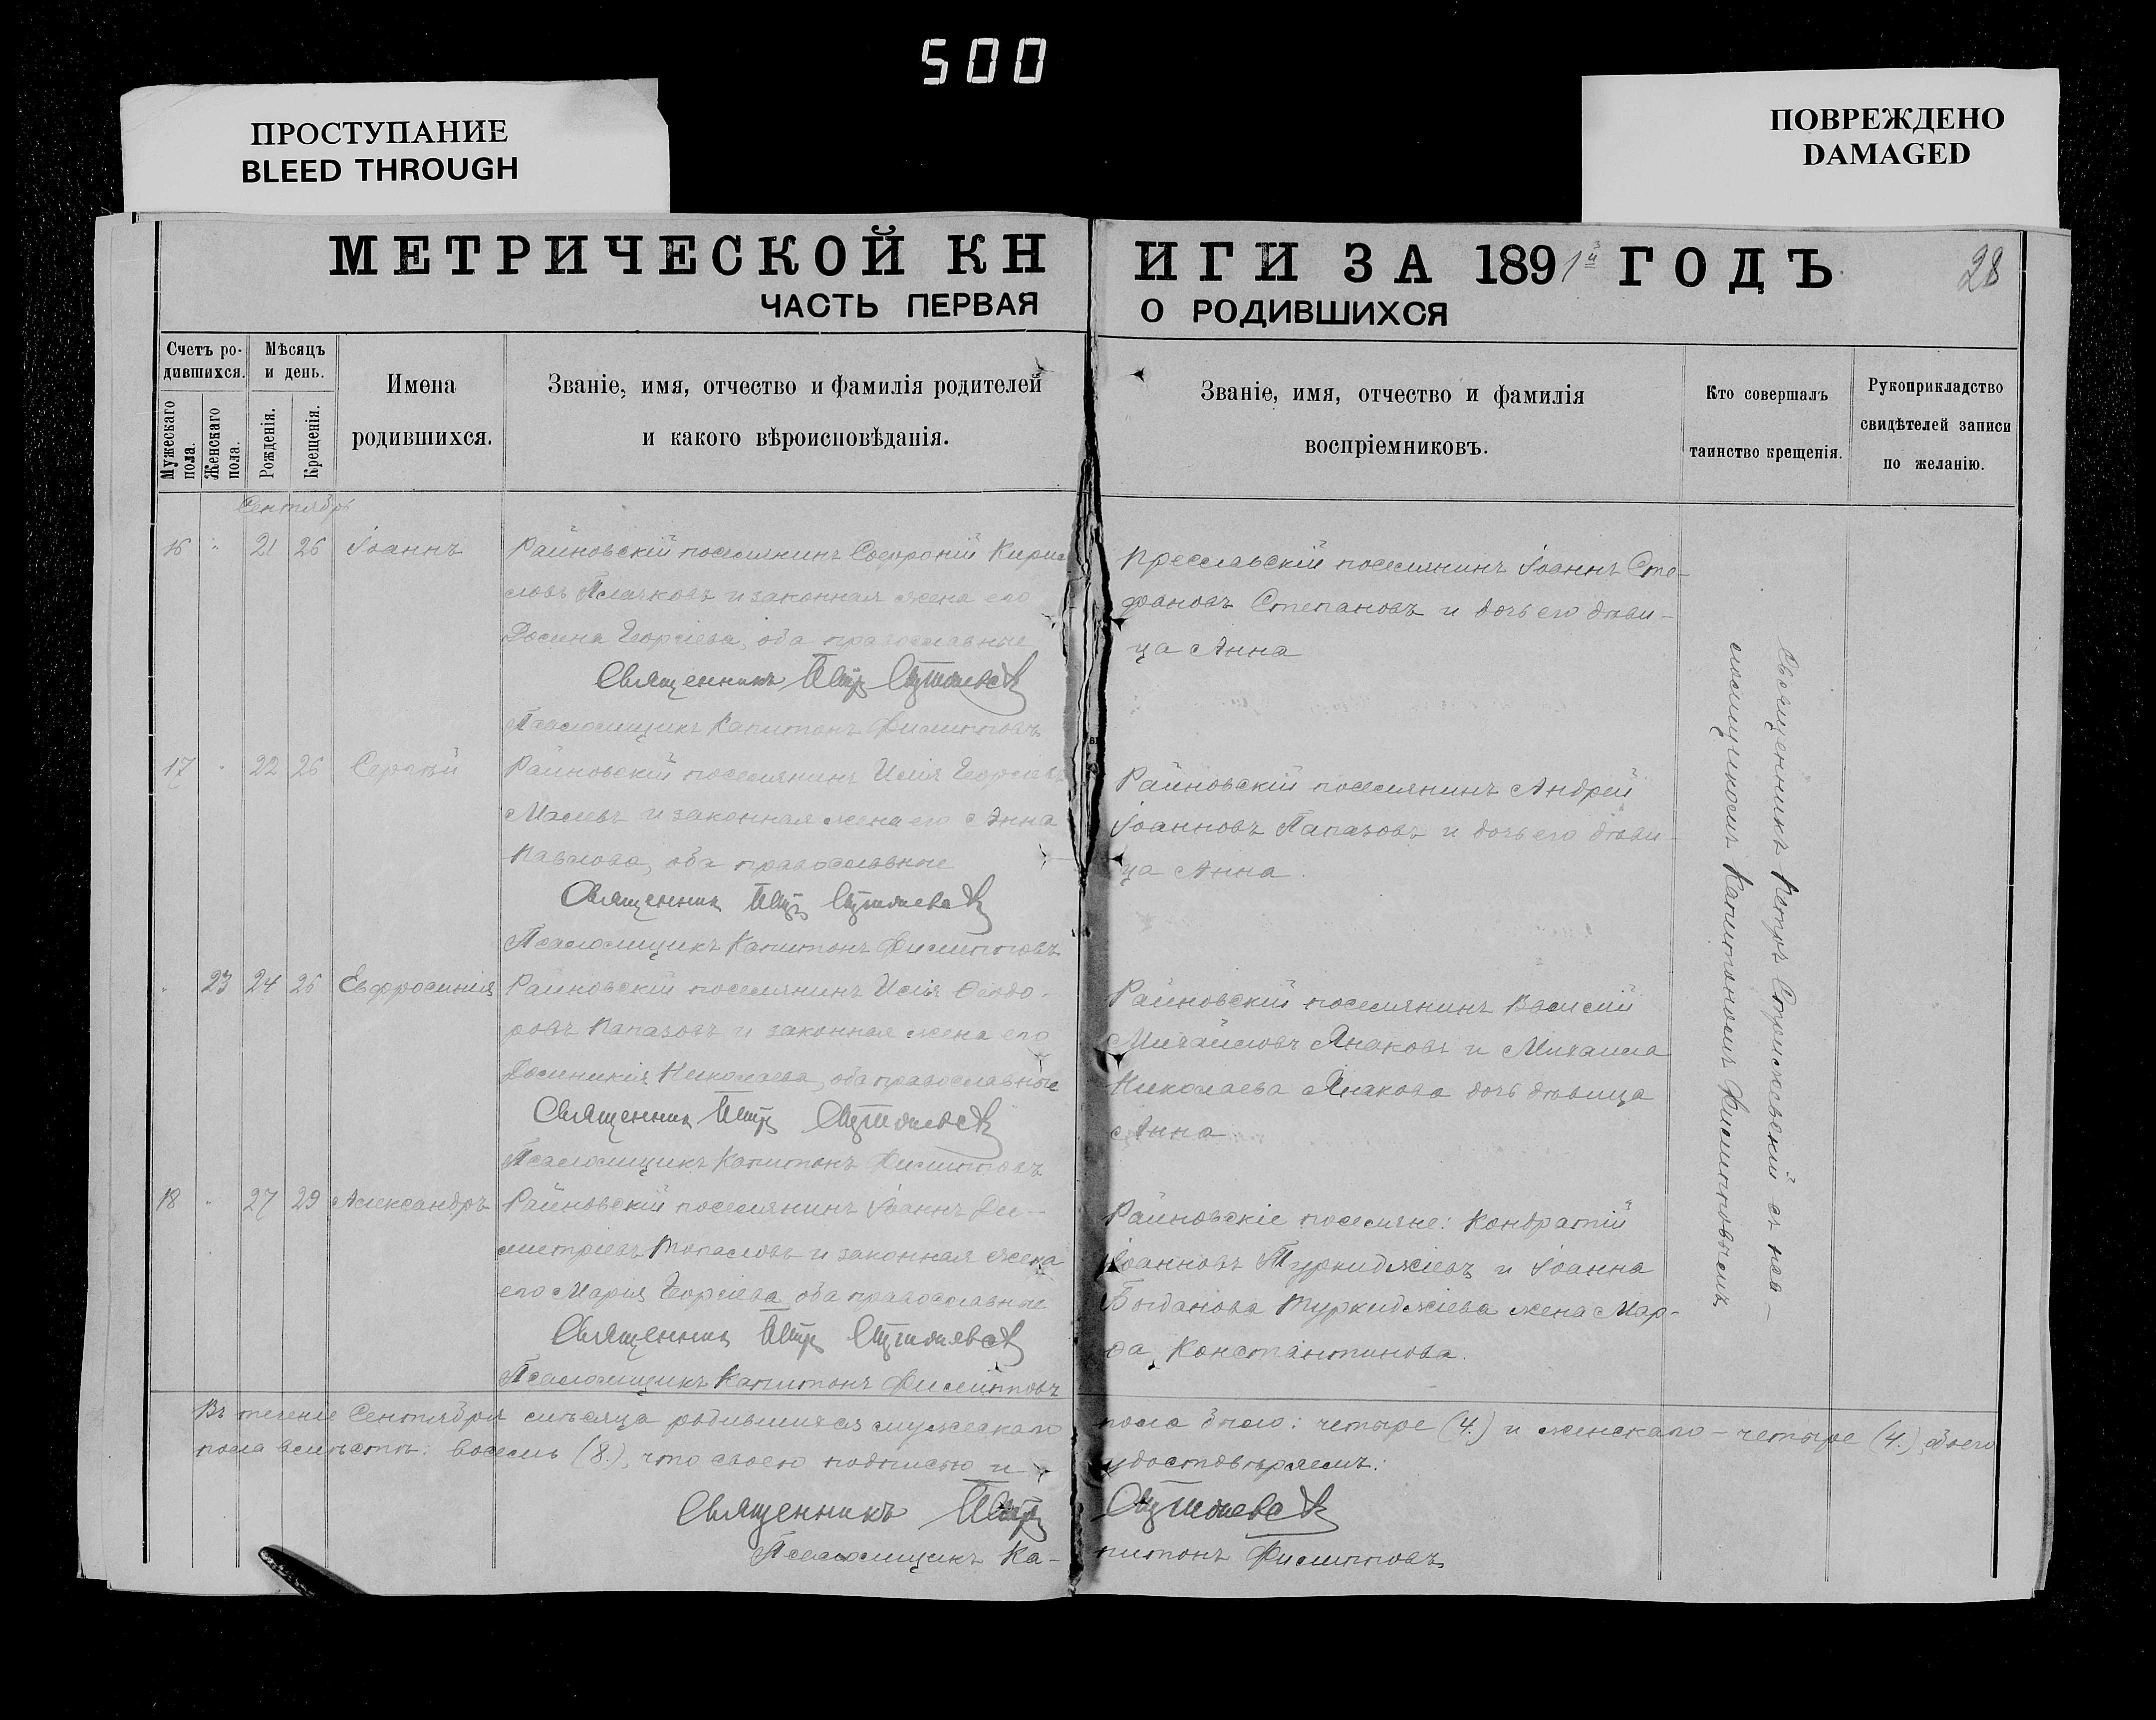 500
ПРОСТУПАНИЕ
BLEED THROUGH
ПОВРЕЖДЕНО
DAMAGED
МЕТРИЧЕСКОЙ КН
ЧАСТЬ ПЕРВАЯ
Счетъ ро-
дившихся.
Мѣсяцъ
и день.
Мужескаго
пола.
Женскаго
пола.
Рожденія.
Крещенія.
Имена
родившихся.
Званіе, имя, отчество и фамилія родителей
и какого вѣроисповѣданія.
Сентябрь
16 " 21 26 Іоаннъ Райновскій поселянинъ Софроній Кирил
ловъ Плачковъ и законная жена его
Георгіева, оба православные
Священникъ Петръ
Псаломщикъ Капитонъ Филипповъ
17 " 22 26 Сергѣй Райновскій поселянинъ Илія Георгіевъ
и законная жена его Анна
Павлова, оба православные
Священникъ Петръ
Псаломщикъ Капитонъ Филипповъ
" 23 24 26 Евфросинія Райновскій поселянинъ Илія Ѳеодо-
ровъ Папазовъ и законная жена его
Доминикія Николаева, оба православные
Священникъ Петръ
Псаломщикъ Капитонъ Филипповъ
18 " 27 29 Александръ Райновскій поселянинъ Іоаннъ Ди-
митріевъ Топаловъ и законная жена
его Марія Георгіева, оба православные
Священникъ Петръ
Псаломщикъ Капитонъ Филипповъ
Въ теченіе Сентября мѣсяца родившихся мужескаго
пола вмѣстѣ: восемь (8.), что своею подписью и
Священникъ Петръ
Псаломщикъ Ка-
ИГИ ЗА 1891й ГОДЪ
28
О РОДИВШИХСЯ
Званіе, имя, отчество и фамилія
воспріемниковъ.
Кто совершалъ
таинство крещенія.
Рукоприкладство
свидѣтелей записи
по желанію.
Преславскій поселянинъ Іоаннъ Сте-
фановъ Степановъ и дочь его дѣви-
ца Анна
Райновскій поселянинъ Андрей
Іоанновъ Папазовъ и дочь его дѣви-
ца Анна.
Райновскій поселянинъ Василій
Михайловъ Янаковъ и Михаила
Николаева Янакова дочь дѣвица
Анна.
Райновскіе поселяне: Кондратій
Іоанновъ Туркиджіевъ и Іоанна
Богданова Туркиджіева жена Мар-
ѳа Константинова.
Священникъ Петръ съ пса-
ломщикомъ Капитономъ Филипповымъ
пола было: четыре (4.) и женскаго - четыре (4.), обоего
удостовѣряемъ:
питонъ Филипповъ